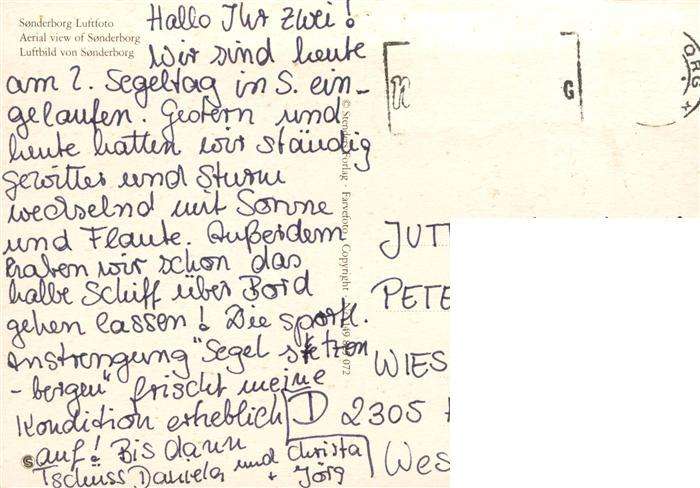 Sønderborg Luftfoto
Aerial view of Sønderborg
Luftbild von Sønderborg
Hallo Ihr zwei!
Wir sind heute
am 2. Segeltag in S. ein-
gelaufen. Gestern und
heute hatten wir ständig
Gewitter und Sturm
wechselnd mit Sonne
und Flaute. Außerdem
haben wir schon das
halbe Schiff über Bord
gehen lassen! Die sportl.
Anstrengung "Segel setzen
- bergen" frischt meine
Kondition erheblich
auf! Bis dann
Tschüss Daniela und Christa
+ Jörg
© Stenders Forlag · Farvefoto · Copyright
072
G
ORG
JUTT
PETE
WIES
D 2305
Wes